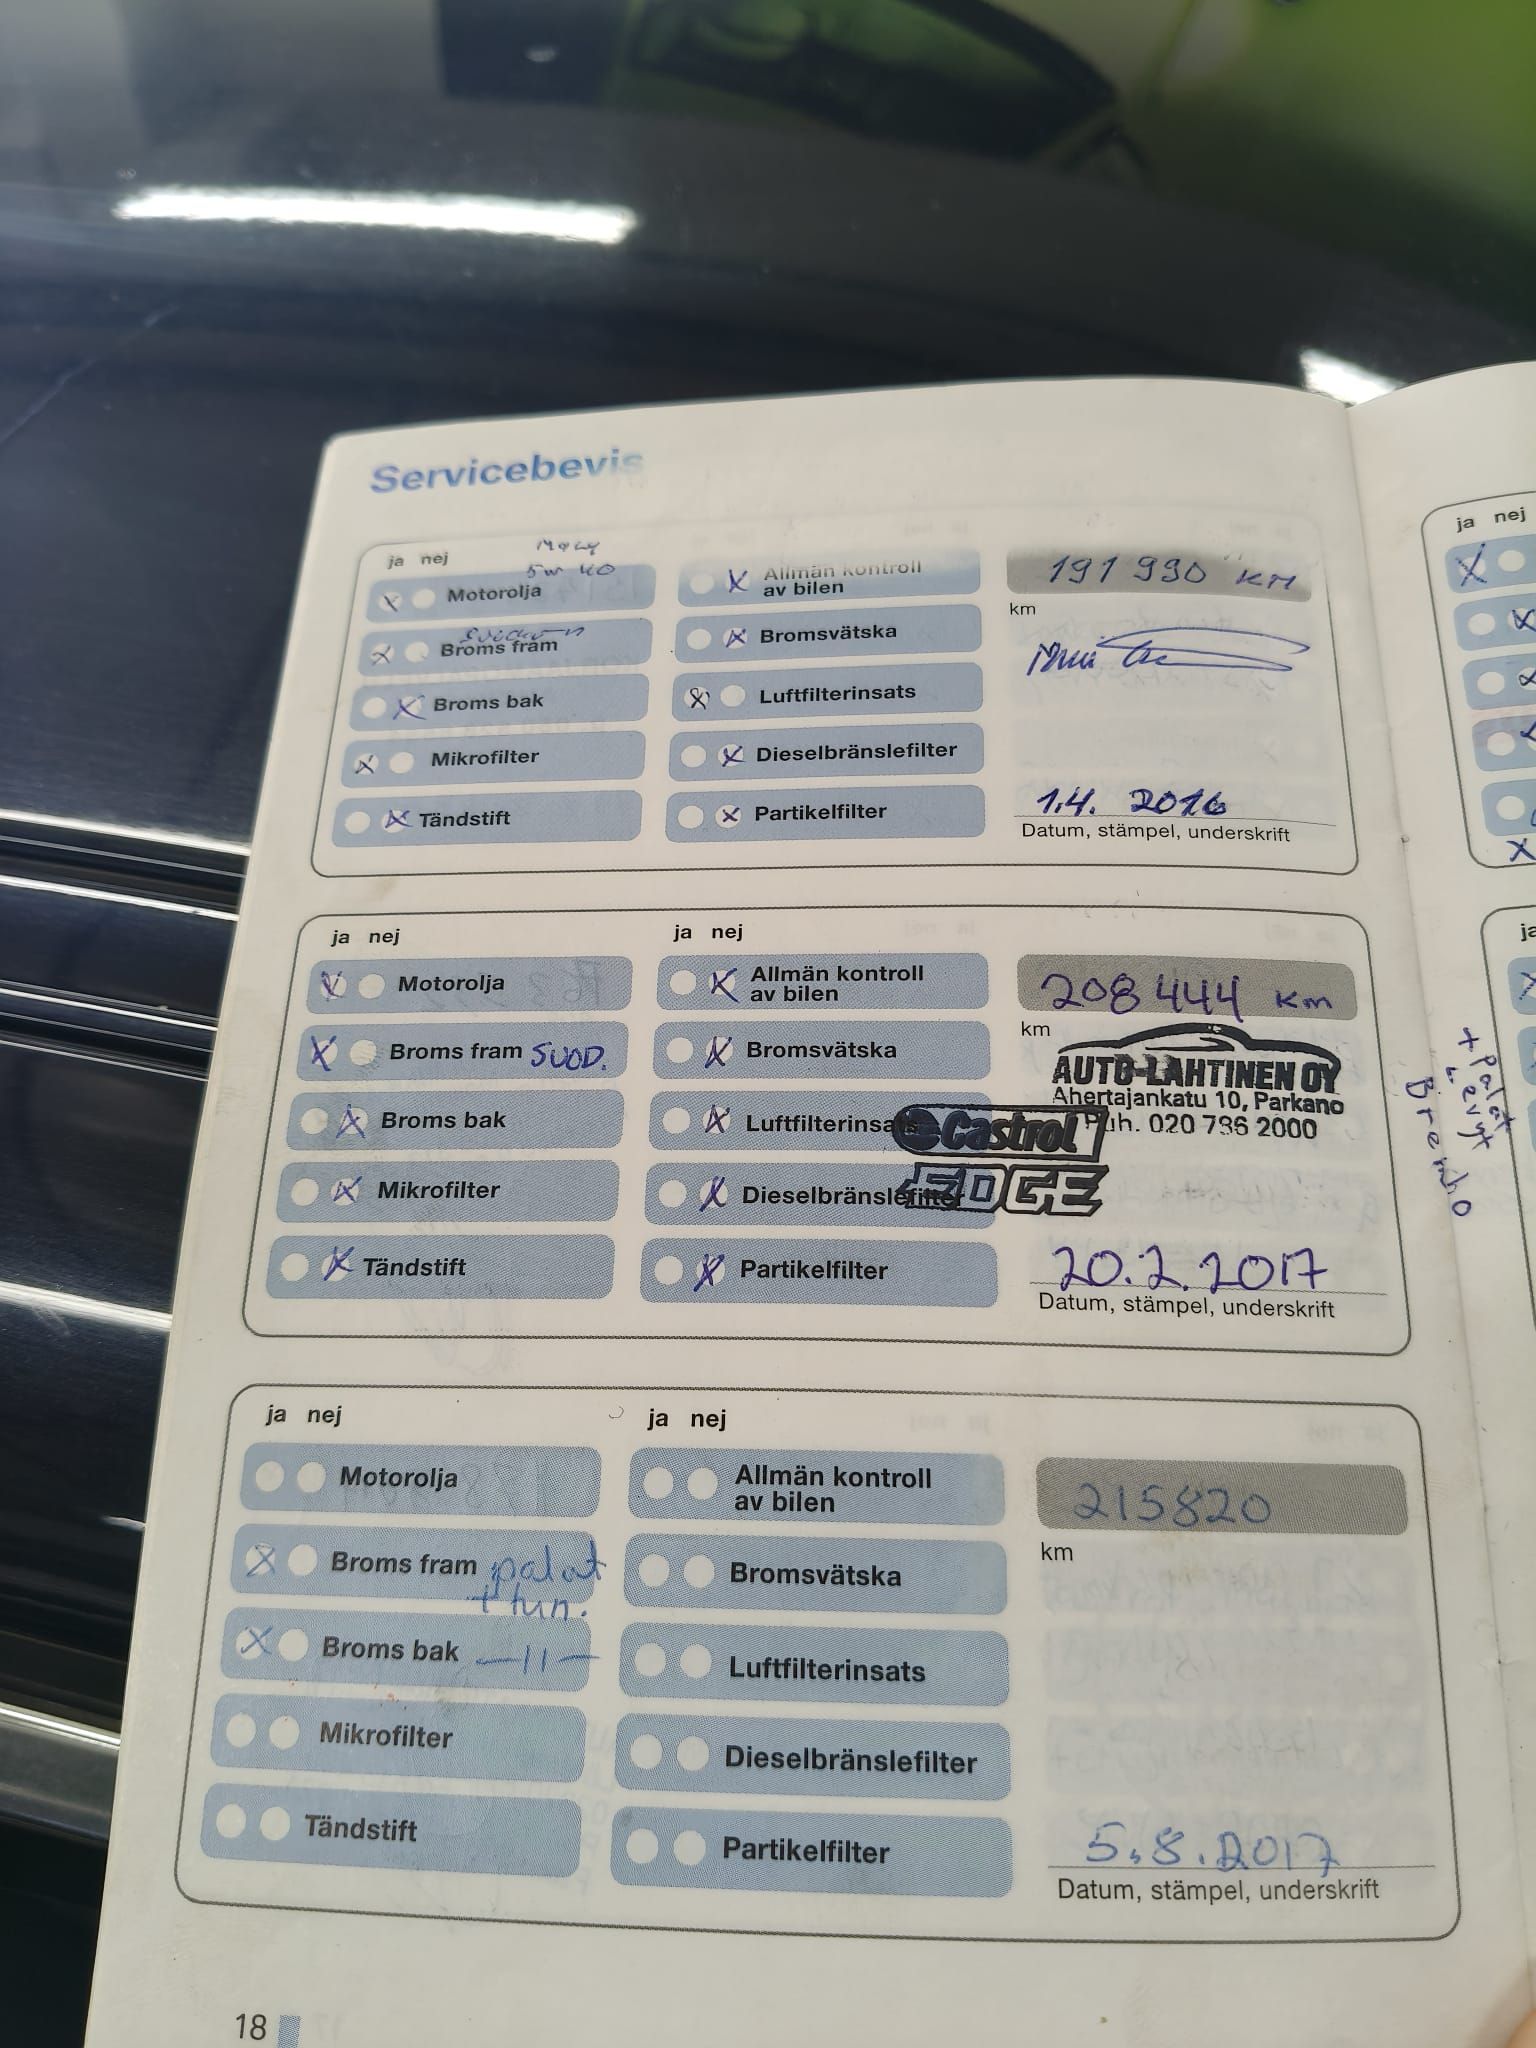 Servicebevis
ja nej
Moly
5w40
Motorolja
Broms fram
Broms bak
Mikrofilter
Tändstift
Allmän kontroll
av bilen
Bromsvätska
Luftfilterinsats
Dieselbränslefilter
Partikelfilter
191 990 KM
km
1.4. 2016
Datum, stämpel, underskrift
ja nej
Motorolja
Broms fram SUOD.
Broms bak
Mikrofilter
Tändstift
ja nej
Allmän kontroll
av bilen
Bromsvätska
Luftfilterinsats
Dieselbränslefilter
Partikelfilter
208 444 km
km
AUTO-LAHTINEN OY
Ahertajankatu 10, Parkano
Puh. 020 786 2000
Castrol
EDGE
20.2.2017
Datum, stämpel, underskrift
ja nej
Motorolja
Broms fram palat
+ tun.
Broms bak —11—
Mikrofilter
Tändstift
ja nej
Allmän kontroll
av bilen
Bromsvätska
Luftfilterinsats
Dieselbränslefilter
Partikelfilter
215820
km
5.8.2017
Datum, stämpel, underskrift
18
ja nej
+ Palat
Levyt
Brembo
ja